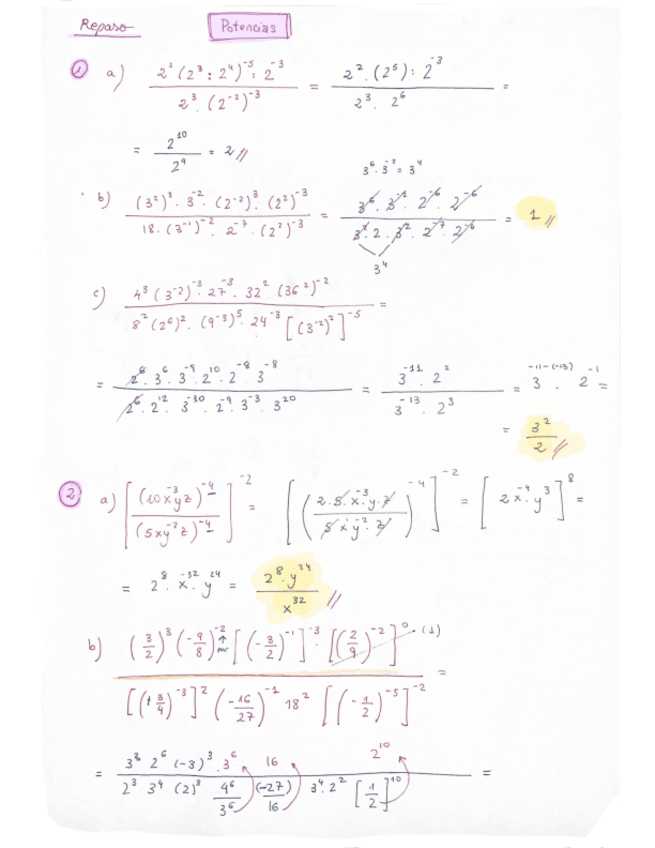 Repaso Potencias
① a) 2² (2³ : 2⁴)⁻⁵ : 2⁻³ / 2³ · (2⁻²)⁻³ = 2² · (2⁵) : 2⁻³ / 2³ · 2⁶ =
= 2¹⁰ / 2⁹ = 2 //
3⁶ · 3⁻² = 3⁴
b) (3²)³ · 3⁻² · (2⁻²)³ · (2²)⁻³ / 18 · (3⁻¹)⁻² · 2⁻⁷ · (2²)⁻³ = 3⁶ · 3⁻² · 2⁻⁶ · 2⁻⁶ / 3² · 2 · 3² · 2⁻⁷ · 2⁻⁶ = 1 //
3⁴
c) 4³ (3⁻²)⁻³ · 27⁻³ · 32² (36²)⁻² / 8² (2⁶)² · (9⁻³)⁵ · 24⁻³ [(3⁻²)²]⁻⁵ =
= 2⁶ · 3⁶ · 3⁻⁹ · 2¹⁰ · 2⁻⁸ · 3⁻⁸ / 2⁶ · 2¹² · 3⁻³⁰ · 2⁻⁹ · 3⁻³ · 3²⁰ = 3⁻¹¹ · 2² / 3⁻¹³ · 2³ = 3⁻¹¹⁻⁽⁻¹³⁾ · 2⁻¹ =
= 3² / 2 //
② a) [(10x⁻³yz)⁻⁴ / (5xy⁻²z)⁻⁴]⁻² = [(2 · 5 · x⁻³ · y · z / 5 x y⁻² · z)⁻⁴]⁻² = [2 x⁻⁴ · y³]⁸ =
= 2⁸ · x⁻³² · y²⁴ = 2⁸ · y²⁴ / x³² //
b) (3/2)³ (-9/8)⁻² [(-3/2)⁻¹]⁻³ · [(2/9)⁻²]⁰ (1) / [(+3/4)⁻³]² (-16/27)⁻¹ 18² [(-1/2)⁻⁵]⁻² =
= 3³ 2⁶ (-3)³ · 3⁶ 16 2¹⁰ / 2³ 3⁴ (2)³ 4⁶/3⁶ (-27)/16 3⁴ · 2² [1/2]¹⁰ =